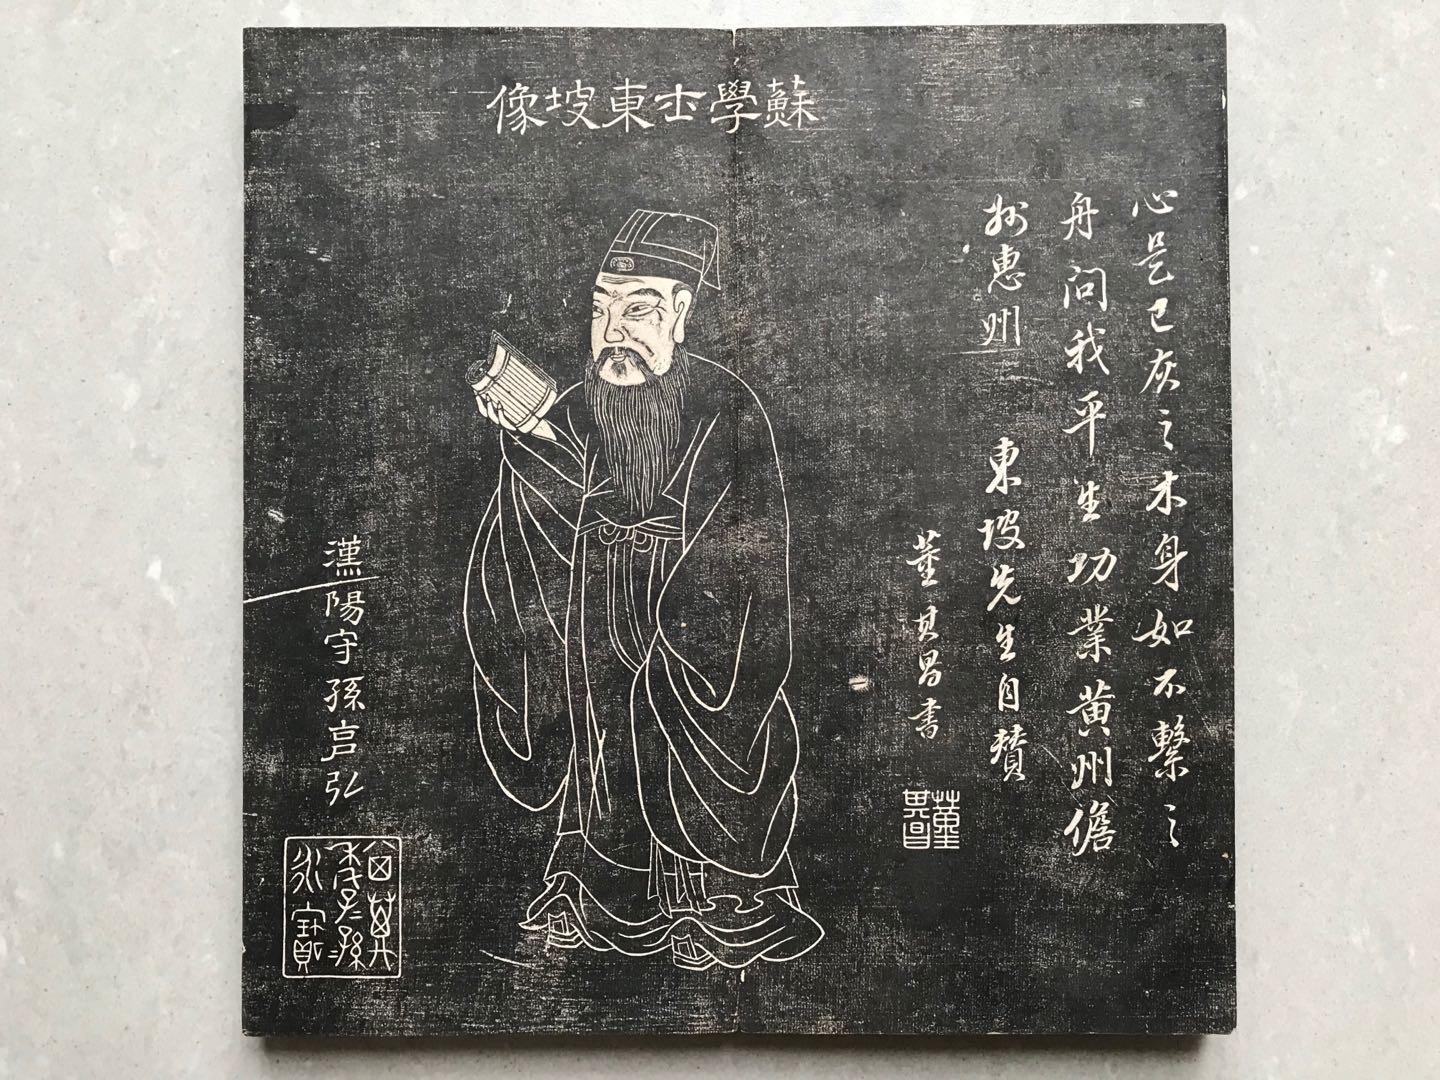 蘇學士東坡像
心是已灰之木身如不繫之
舟問我平生功業黄州儋
州惠州　東坡先生自贊
董其昌書
董其昌
漢陽守孫亯弘
子孫永寶